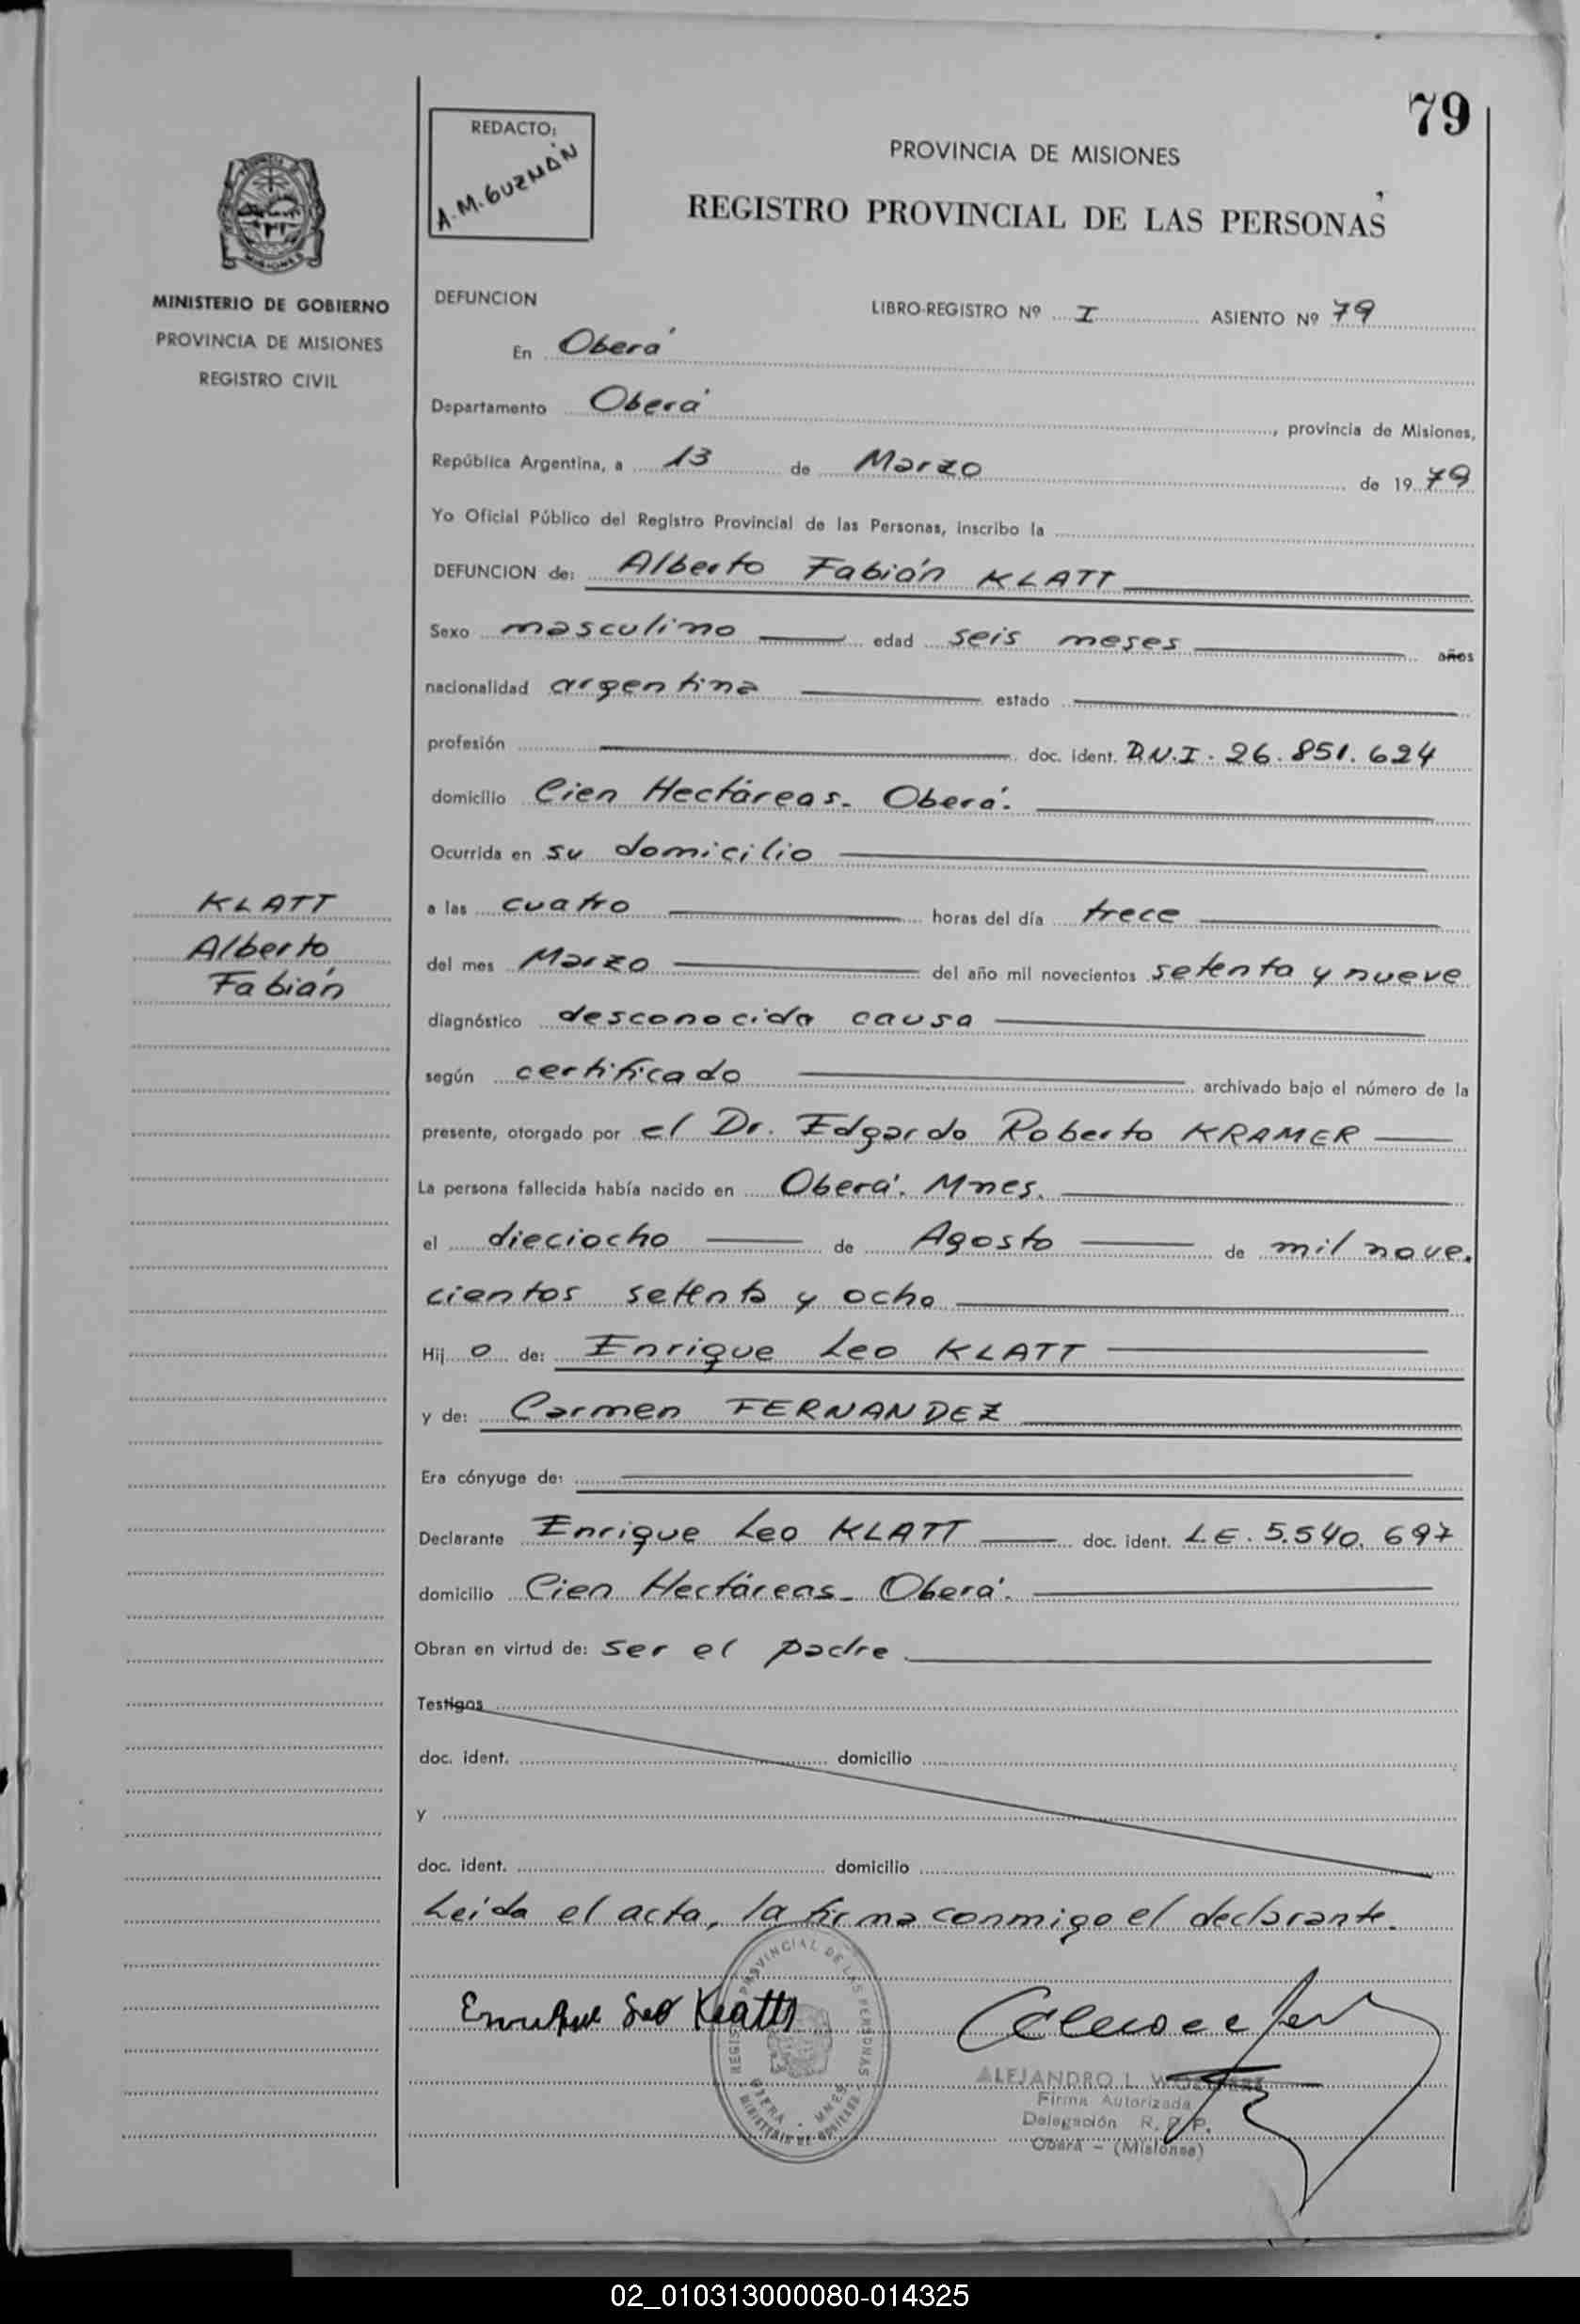 79
REDACTO:
A. M. GUZMÁN
PROVINCIA DE MISIONES
REGISTRO PROVINCIAL DE LAS PERSONAS
MISIONES
MINISTERIO DE GOBIERNO
PROVINCIA DE MISIONES
REGISTRO CIVIL
DEFUNCION LIBRO-REGISTRO Nº I ASIENTO Nº 79
En Oberá
Departamento Oberá, provincia de Misiones,
República Argentina, a 13 de Marzo de 1979
Yo Oficial Público del Registro Provincial de las Personas, inscribo la
DEFUNCION de: Alberto Fabián KLATT
Sexo masculino edad seis meses años
nacionalidad argentina estado
profesión doc. ident. D.N.I. 26.851.624
domicilio Cien Hectáreas - Oberá.
Ocurrida en su domicilio
KLATT
Alberto
Fabián
a las cuatro horas del día trece
del mes Marzo del año mil novecientos setenta y nueve
diagnóstico desconocida causa
según certificado archivado bajo el número de la
presente, otorgado por el Dr. Edgardo Roberto KRAMER
La persona fallecida había nacido en Oberá. Mnes.
el dieciocho de Agosto de mil nove-
cientos setenta y ocho
Hijo de: Enrique Leo KLATT
y de: Carmen FERNANDEZ
Era cónyuge de:
Declarante Enrique Leo KLATT doc. ident. L.E. 5.540.697
domicilio Cien Hectáreas - Oberá.
Obran en virtud de: ser el padre
Testigos
doc. ident. domicilio
y
doc. ident. domicilio
Leída el acta, la firma conmigo el declarante.
Enrique Leo Klatt
REGISTRO PROVINCIAL DE LAS PERSONAS
OBERA - MNES
MINISTERIO DE GOBIERNO
ALEJANDRO L.
Firma Autorizada
Delegación R. P. P.
Oberá - (Misiones)
02_010313000080-014325